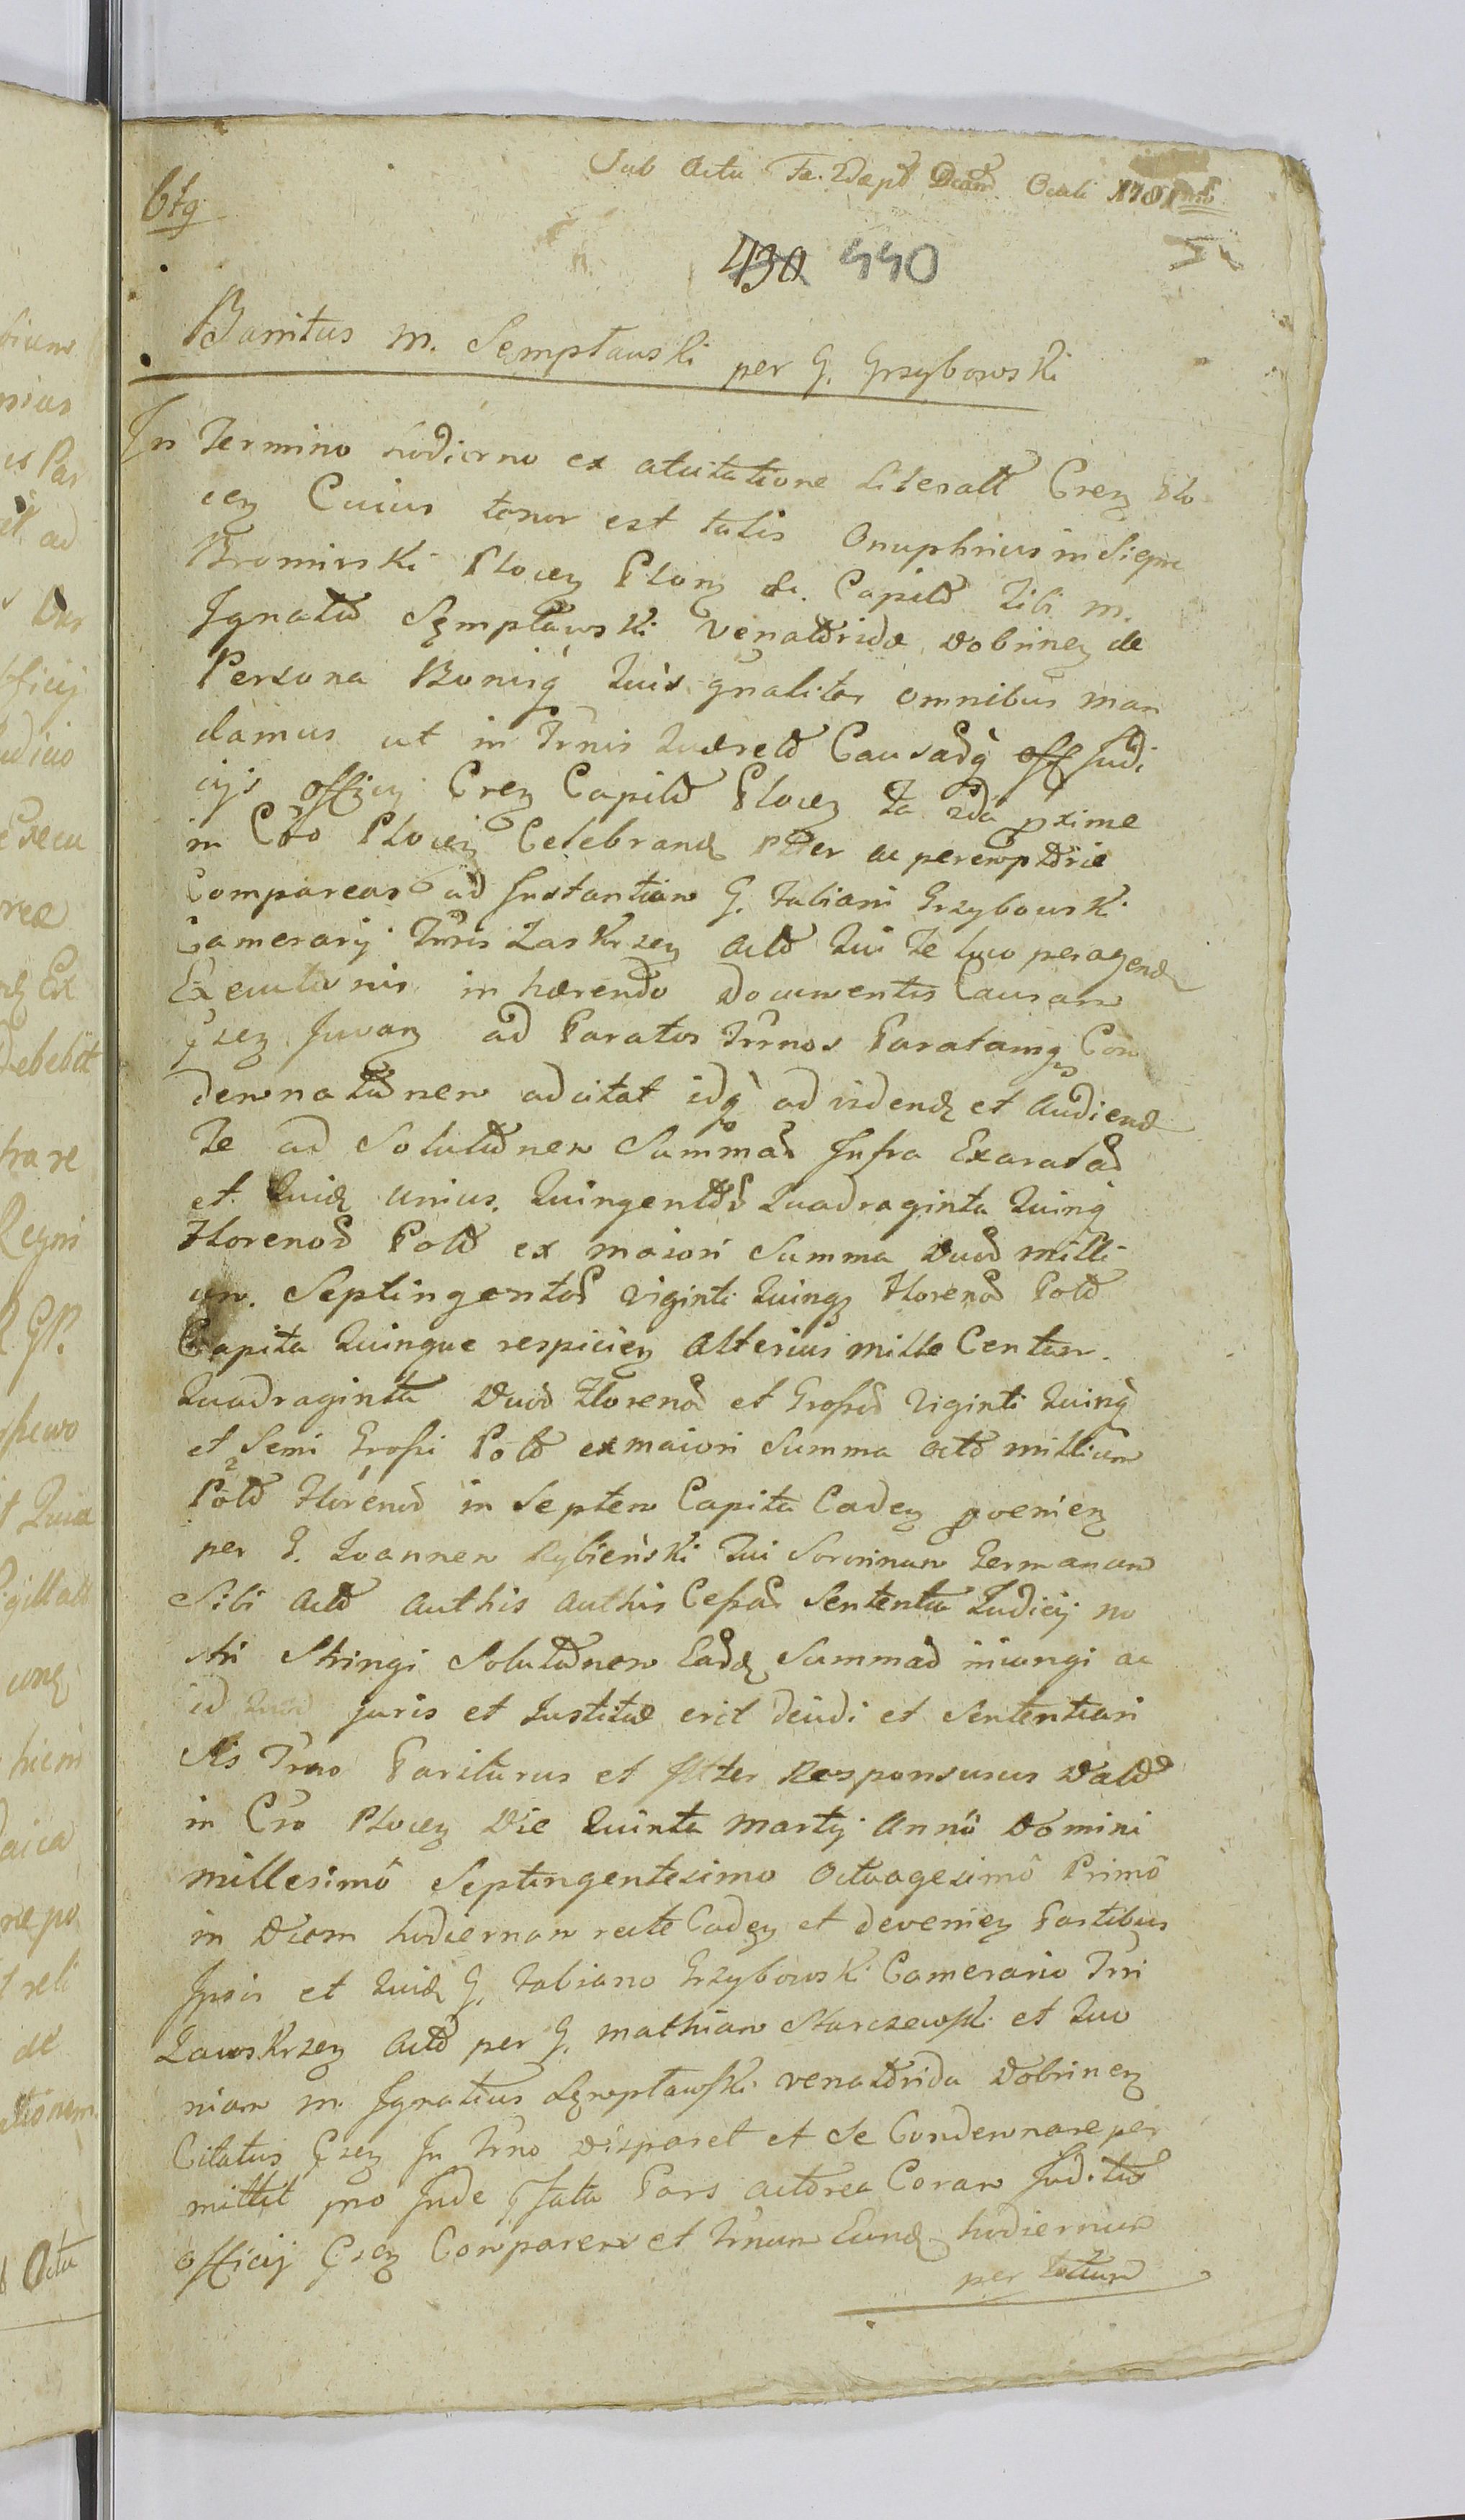 Sub Actu Fa. 2da pt Dcam Oculi 1781mo
btg
430 440
Banitus M. Sempławski per G. Grzybowski
In Termino hodierno ex atcitatione Literatt Cren Plo
cen Cuius tenor est talis Onuphrius in Siepre
Bromirski Plocen Plonz &c. Capitd Tibi M.
Ignatio Sęmpławski Venatdridæ Dobrinen de
Persona Bonisq Tuis gnaliter omnibus man
damus ut in Trnis Querełd Causadq off Judi
cijs officij Cren Capitd Plocen Fa 2da pxime
in Ctto Plocen Celebrand ptter ac peremptdrie
Compareas ad Instantiam G. Fabiani Grzybowski
Camerarij Trris Zaskrzen Actd Qui Te loco peragend
Executionis in hærendo Documentis Causam
Psen Juvan ad Paratos Trrnos Paratamq Con
demnatdnem adcitat idq ad videnđ et audiend
Te ad Solutdnem Summad Infra Exaratad
et Quid unius Quingentdd Quadraginta Quinq
Florenod Pold ex maiori Summa Duod milli
um. Septingentod viginti Quinq Florenod Pold
Capita Quinque respicien Alterius mille Centum.
Quadraginta Duod Florenod et Grossod Viginti Quinq
et Semi Grossi Pold ex maiori Summa Octd millium
Pold Florenod in Septem Capita Caden pvenien
per G. Joannem Rybieński Qui Sororinum Germanum
Sibi Actd Authis Authis Cessad Sententia Judicij no
stri Stringi Solutdnem Eadd Summad iniungi ac
id Quod juris et Justitiæ erit decidi et Sententiari
Sis Trno Pariturus et ptter Responsurus Datdd
in Cro Plocen Die Quinta Martij Anno Domini
Millesimo Septingentesimo Octuagesimo Primo
in Diem hodiernam recte Caden et devenien Partibus
Ipsis et Quid G. Fabiano Grzybowski Camerario Trri
Zawskrzen Actd per G. Mathiam Starczewski et Quo
niam M. Ignatius Sęmpławski Venatdrida Dobrinen
Citatus Psen In Trno disparet et se Condemnare per
mittit pro Inde Pfata Pars actdrea Coram Juditio
officij Psen Comparens et Trnum Eund hodiernum
per Totum